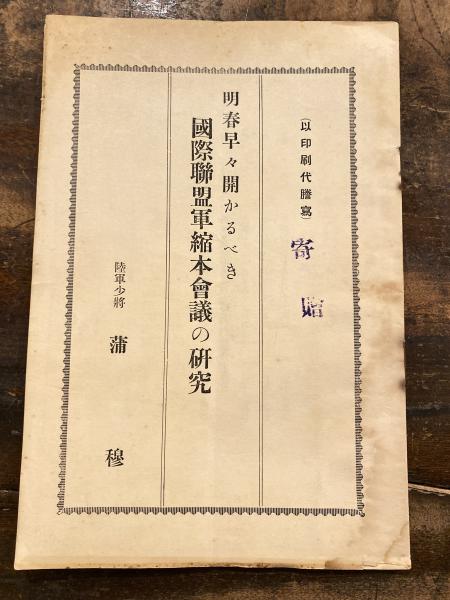 (以印刷代謄寫)
寄贈
明春早々開かるべき
國際聯盟軍縮本會議の硏究
陸軍少將 蒲 穆